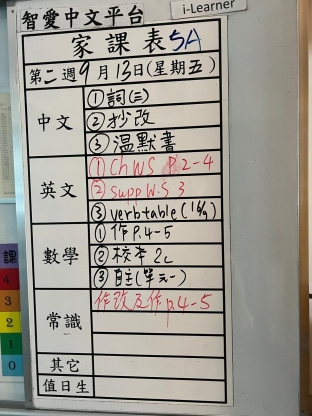 智愛中文平台
i-Learner
家課表 5A
第二週9月13日(星期五)
中文
①詞(三)
②抄改
③溫默書
英文
①Ch WS P.2-4
②Supp W.S 3
③verb table (16/9)
數學
①作P.4-5
②校本2c
③自主(單元一)
常識
作改及作p.4-5
其它
值日生
課
4
3
2
1
0